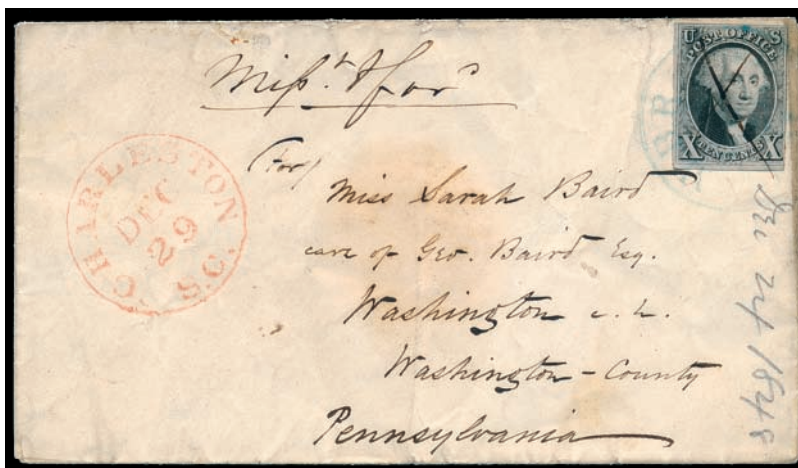 U S
POST OFFICE
X TEN CENTS X
Misst & for'd
CHARLESTON
DEC
29
S.C.
(For)
Miss Sarah Baird
care of Geo. Baird Esq.
Washington
Washington - County
Pennsylvania
Dec 24 1848